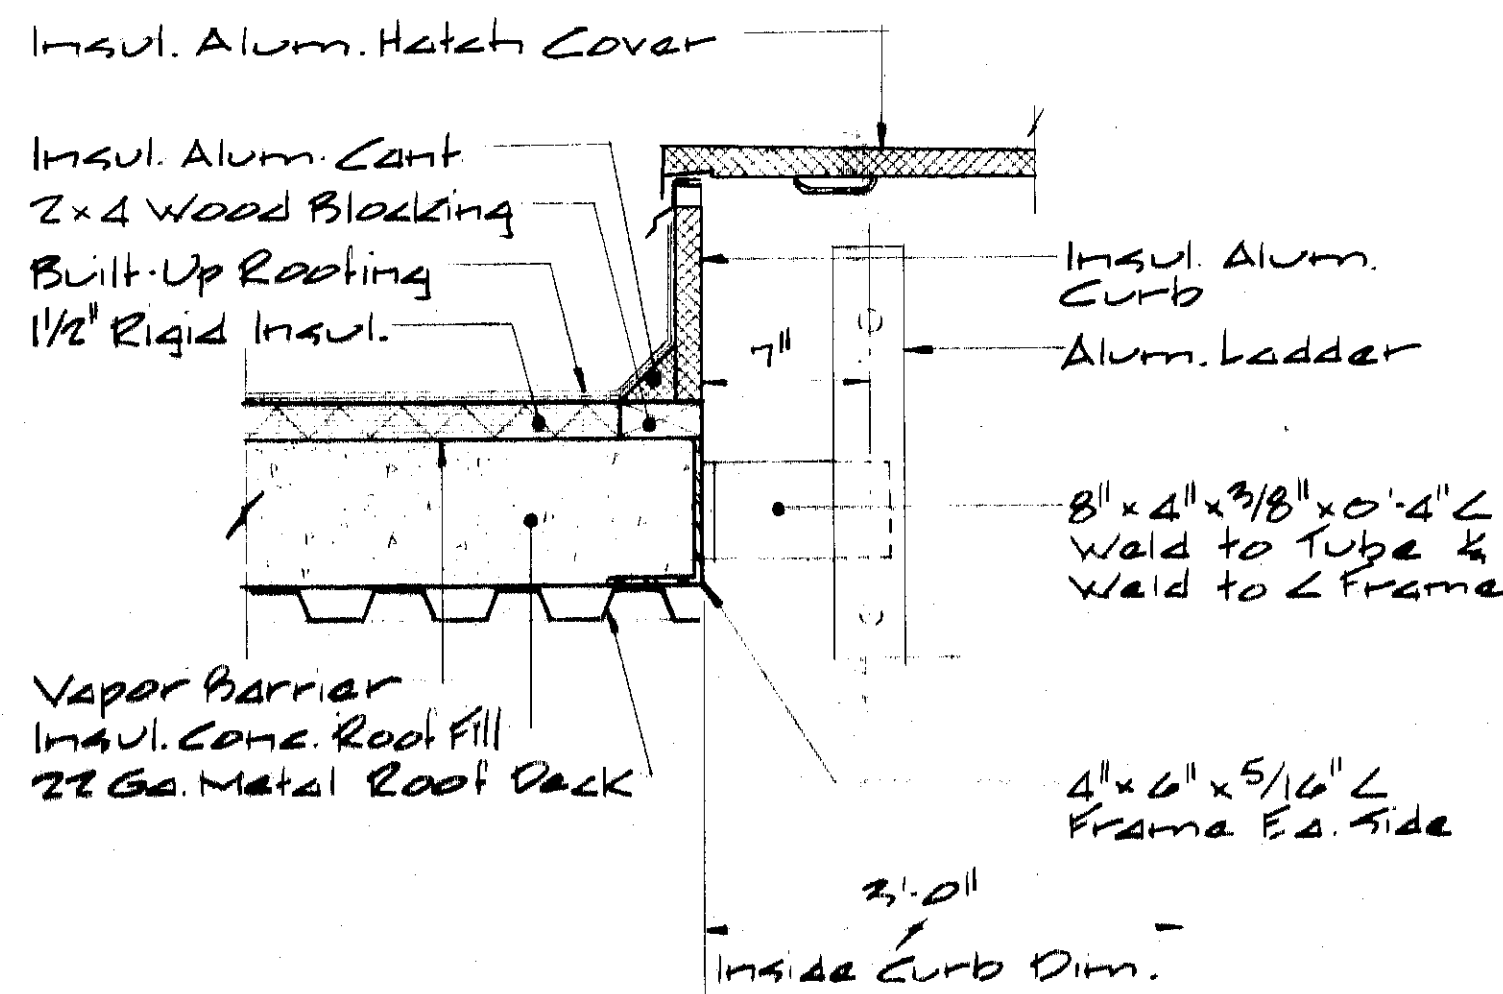 Insul. Alum. Hatch Cover
Insul. Alum. Cant
2x4 Wood Blocking
Built-Up Roofing
1 1/2" Rigid Insul.
Insul. Alum.
Curb
7"
Alum. Ladder
8" x 4" x 3/8" x 0'-4" L
Weld to Tube &
Weld to L Frame
Vapor Barrier
Insul. Conc. Roof Fill
22 Ga. Metal Roof Deck
4" x 6" x 5/16" L
Frame Ea. Side
3'-0"
Inside Curb Dim.